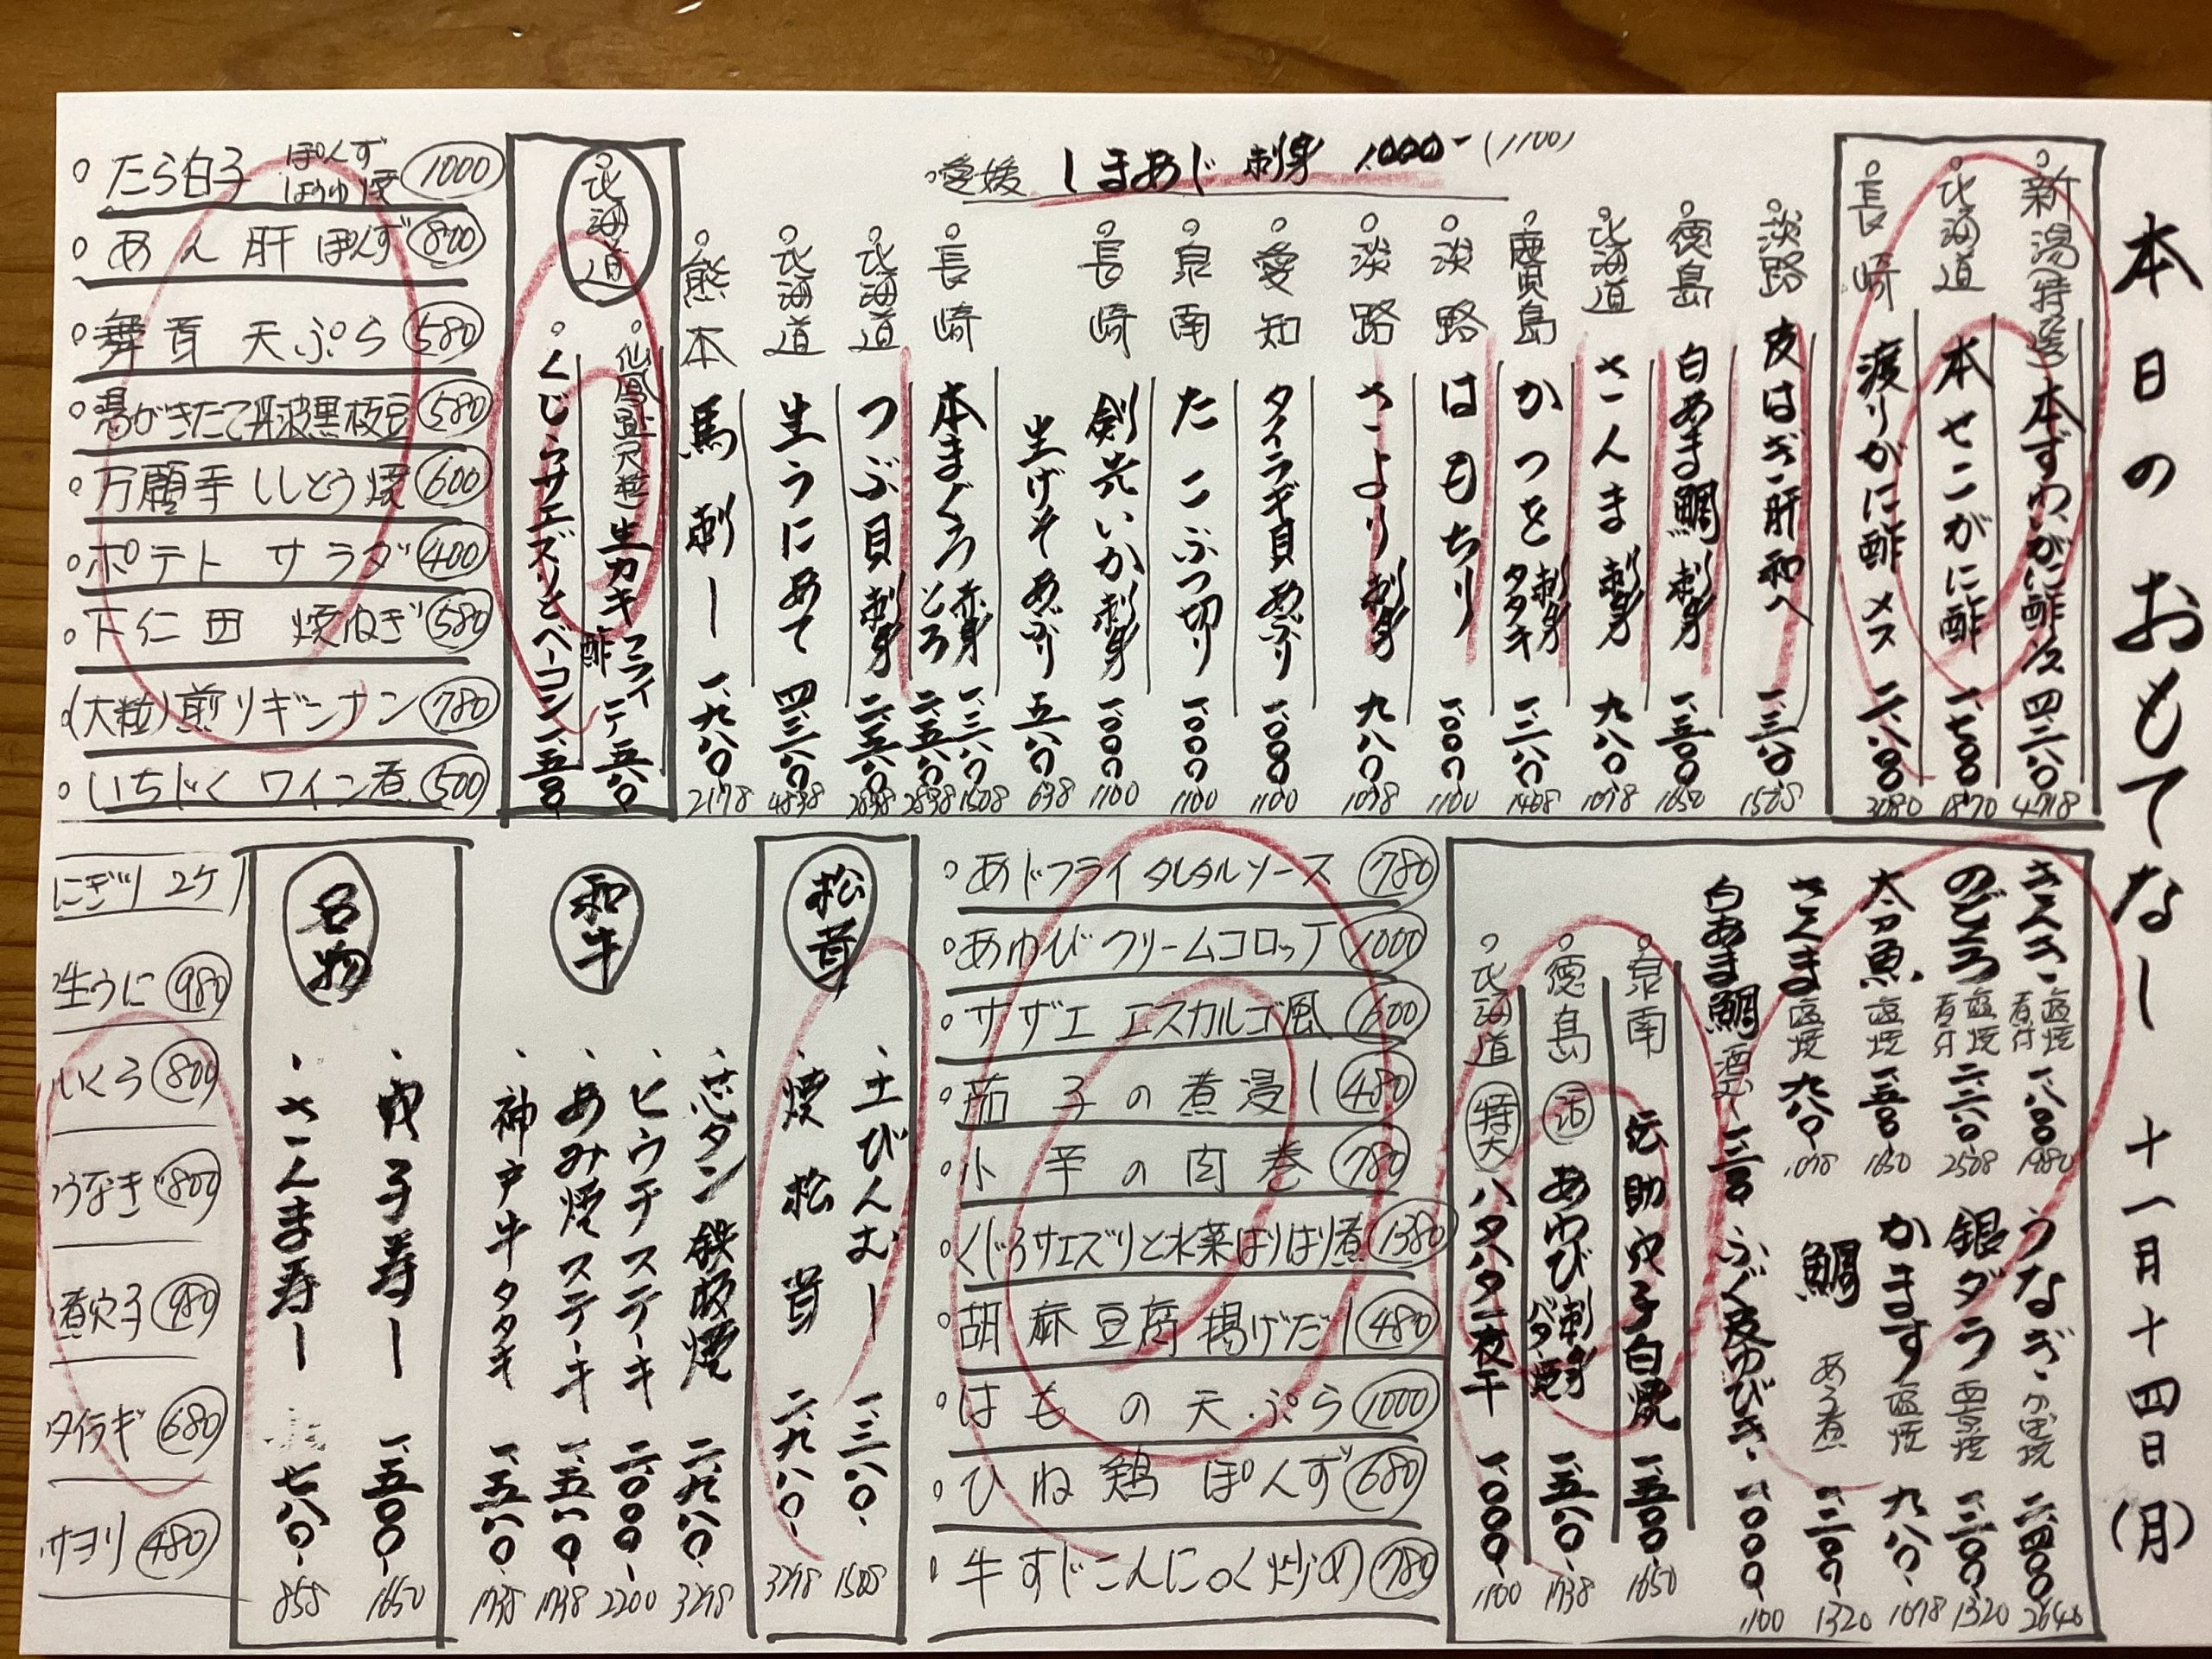 本日のおもてなし 十一月十四日(月)
新潟(特選)本ずわいがに酢 4718
北海道 本せこがに酢 一、七〇〇 1870
長崎 渡りがに酢 メス 二、八〇〇 3080
愛媛 しまあじ 刺身 1000-(1100)
淡路 皮はぎ肝和へ 一、三八〇 1508
徳島 白あま鯛 刺身 一、五〇〇 1650
北海道 さんま 刺身 九八〇 1078
鹿児島 かつを 刺身 タタキ 一、二八〇 1408
淡路 はもちり 一、〇〇〇 1100
淡路 さより 刺身 九八〇 1078
愛知 タイラギ貝 あぶり 一、〇〇〇 1100
泉南 たこぶつ切り 一、〇〇〇 1100
長崎 剣先いか 刺身 一、〇〇〇 1100
生げそ あぶり 五八〇 638
長崎 本まぐろ 赤身 一、三八〇 1508
とろ 二、五八〇 2838
北海道 つぶ貝 刺身 二、五八〇 2838
北海道 生うにあて 四、三八〇 4838
熊本 馬刺し 一、九八〇 2178
北海道
仙鳳趾(大粒)生カキ フライ 酢 一、五八〇
くじらサエズリとベーコン 一、五〇〇
たら白子 ぽんず ほうゆ焼 1000
あん肝 ぽんず 800
舞茸 天ぷら 580
湯がきたて丹波黒枝豆 580
万願寺ししとう焼 600
ポテト サラダ 400
下仁田 焼ねぎ 580
(大粒)煎りギンナン 780
いちじく ワイン煮 500
さんき 塩焼 煮付 一、八〇〇 1980
のどぐろ 塩焼 煮付 二、二八〇 2508
太刀魚 塩焼 一、五〇〇 1650
さんま 塩焼 九八〇 1078
白あま鯛 酒むし
うなぎ かば焼 二、四〇〇 2640
銀ダラ 西京焼 一、二〇〇 1320
かます 塩焼 九八〇 1078
鯛 あら煮 一、二〇〇 1320
ふぐ皮ゆびき 一、〇〇〇 1100
泉南 伝助穴子白焼 一、五〇〇 1650
徳島 活 あわび 刺身 バタ焼 一、五八〇 1738
北海道 特大 ハタハタ一夜干 一、〇〇〇 1100
あじフライ タルタルソース 780
あわび クリームコロッケ 1000
サザエ エスカルゴ風 600
茄子の煮浸し 480
小芋の肉巻 780
くじらサエズリと水菜はりはり煮 1380
胡麻豆腐 揚げだし 480
はもの天ぷら 1000
ひね鶏 ぽんず 680
牛すじこんにゃく炒め 780
松茸
土びんむし 一、三八〇 1508
焼松茸 二、九八〇 3278
和牛
芯タン鉄板焼 二、九八〇 3278
ヒウチステーキ 二、〇〇〇 2200
あみ焼ステーキ 一、五八〇 1738
神戸牛タタキ 一、五八〇 1738
名物
穴子寿し 一、五〇〇 1650
さんま寿し 七八〇 858
にぎり 2ケ
生うに 980
いくら 800
うなぎ 800
煮穴子 980
タイラギ 680
サヨリ 480